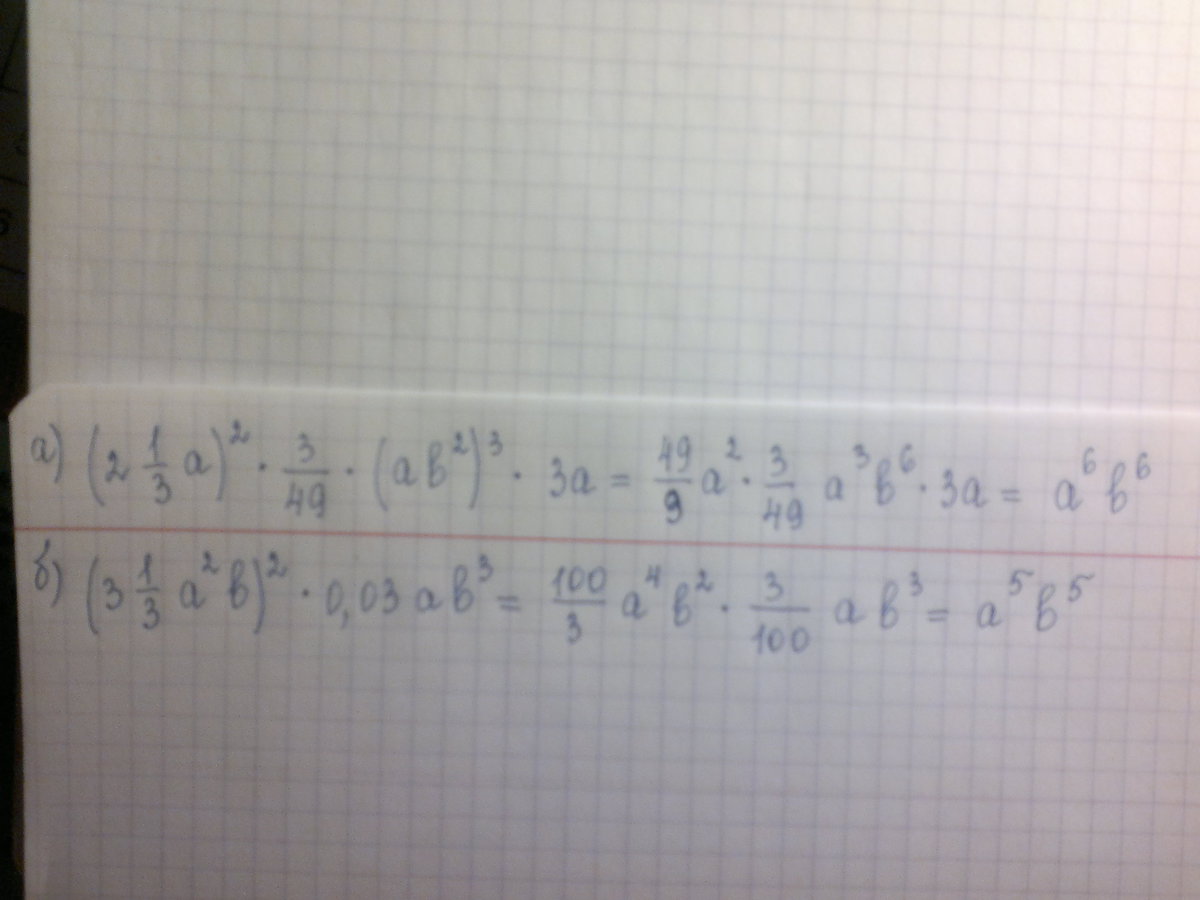 а) (2 1/3 a)² · 3/49 · (ab²)³ · 3a = 49/9 a² · 3/49 a³b⁶ · 3a = a⁶b⁶
б) (3 1/3 a²b)² · 0,03 ab³ = 100/3 a⁴b² · 3/100 ab³ = a⁵b⁵